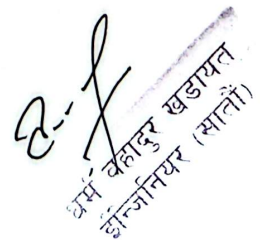 धर्म बहादुर खडायत
ईन्जिनियर (सातौं)